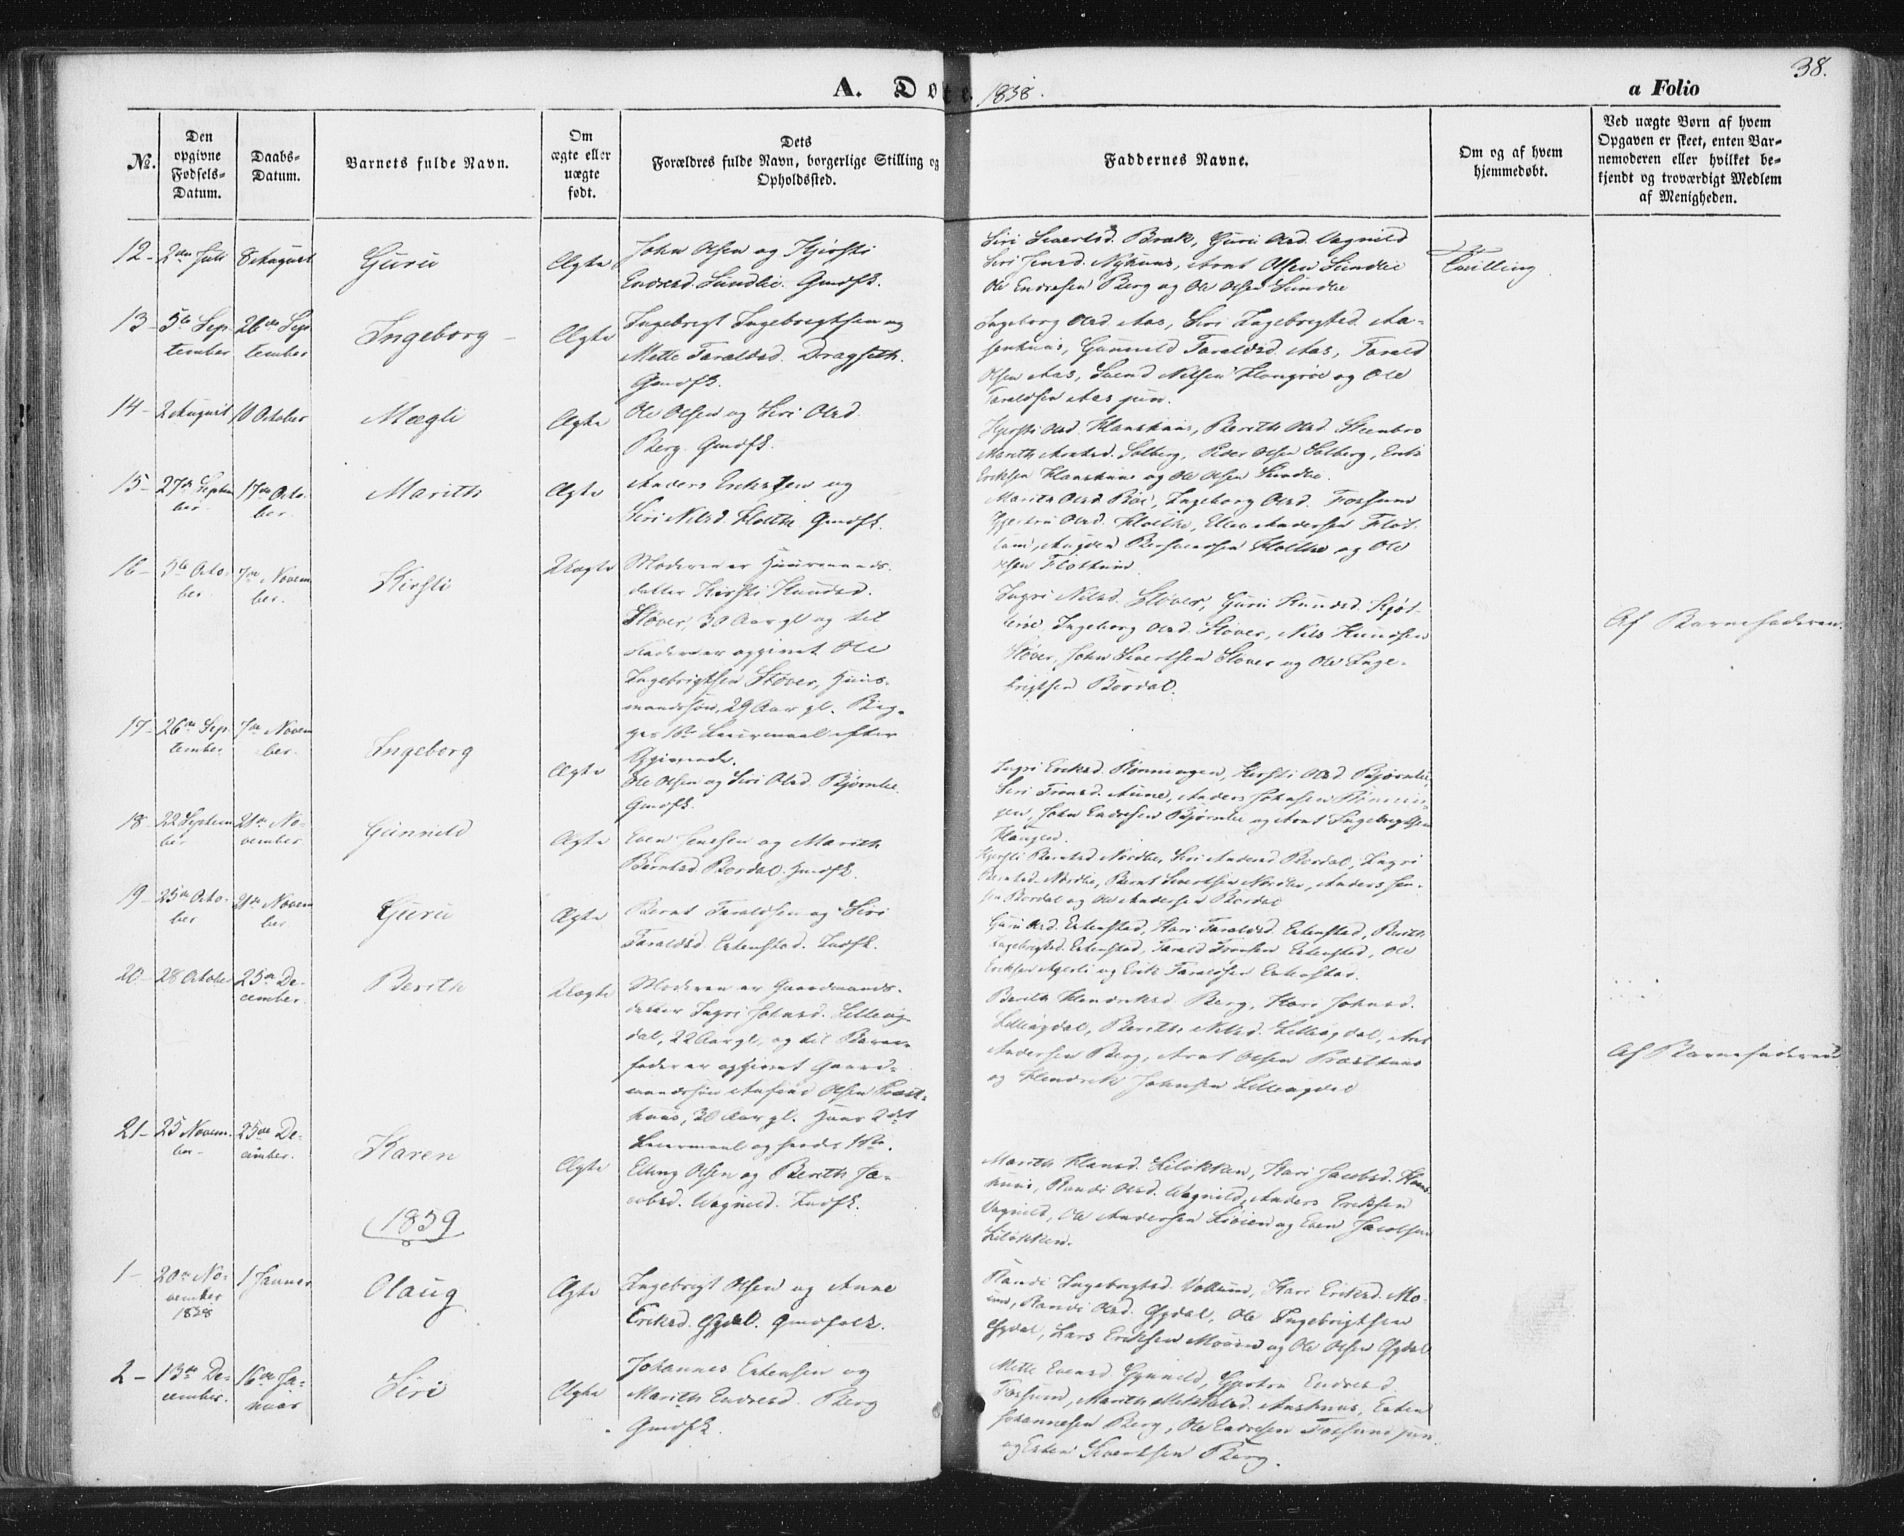 38.
A. Døte 1838.
a Folio
No.
Den opgivne Fødsels-Datum.
Daabs-Datum.
Barnets fulde Navn.
Om ægte eller uægte født.
Dets Forældres fulde Navn, borgerlige Stilling og Opholdssted.
Faddernes Navne.
Om og af hvem hjemmedøbt.
Ved uægte Børn af hvem Opgaven er skeet, enten Barnemoderen eller hvilket bekjendt og troværdigt Medlem af Menigheden.
12 - 2den Juli 8 August Guru Ægte
John Olsen og Kjersti
Endresd. Sundlie. Gmdfk.
Siri Sivertsd. Brak, Guru Olsd. Vagnild
Siri Jensd. Nyhuus, Arnt Olsen Sundlie
Ole Endresen Berg og Ole Olsen Sundlie
Tvilling.
13 - 5te September 26de September Ingeborg Ægte
Ingebrigt Ingebrigtsen og
Mette Taraldsd. Dragseth.
Gmdfk.
Ingeborg Olsd Aas, Siri Ingebrigtsd. Aa-
senhuus, Gunnild Taraldsd. Aas, Tarald
Olsen Aas, Svend Nilsen Haugrøe og Ole
Taraldsen Aas jun.
14 - 2 August 10 October Mægli Ægte
Ole Olsen og Siri Olsd.
Berg. Gmdfk.
Kjersti Olsd. Hanshuus, Berith Olsd. Steenbro
Marith Arntsd. Solberg, Peder Olsen Solberg, Erik
Eriksen Hanshuus og Ole Olsen Sundlie.
15 - 27de September 17de October Marith Ægte
Anders Eriksen og
Siri Nilsd. Flottk. Gmdfk.
Marith Olsd. Bøe, Ingeborg Olsd. Fossum
Olsd.
og Ole
Olsen
16 - 5te October 7de November Kirsti Uægte
Moderen er Huusmands-
datter Kirsti Knudsd.
Støver, 30 Aar gl og til
Fader er opgivet Ole
Ingebrigtsen Støver, Huus-
mandssøn, 29 Aar gl. Beg-
ges 1ste Leiermaal efter
Opgivende.
Ingri Nilsd. Støver, Guru Knudsd. Kjøt-
Ingeborg Olsd. Støver, Nils Knudsen
Støver, John Sivertsen Støver og Ole Inge-
brigtsen Bordal.
Af Barnefaderen.
17 - 26de September 7de November Ingeborg Ægte
Ole Olsen og Siri Olsd. Bjørnlie.
Gmdfk.
Ingri Eriksd. Rønningen, Kirsti Olsd. Bjørnlie,
Siri Tronsd. Aune, Anders Johnsen Rønnin-
gen, John Endresen Bjørnlie og Arnt Ingebrigtsen
Haugen.
18 - 22 September 21de November Gunnild Ægte
Even Jensen og Marith
Berntsd. Bordal. Gmdfk.
Kjersti Berntsd. Nordlie, Siri Andersd. Bordal, Ingri
Berntsd. Nordlie, Bernt Sivertsen Nordlie, Anders Jen-
sen Bordal og Ole Andersen Bordal
19 - 25de October 21de November Guru Ægte
Bernt Taraldsen og Siri
Taraldsd. Estenstad. Indfk.
Guru Olsd. Estenstad, Kari Taraldsd. Estenstad, Berith
Ingebrigtsd. Estenstad, Tarald Tronsen Estenstad, Ole
Eriksen Agerli og Erik Taraldsen Estenstad.
20 - 28 October 25de December Berith Uægte
Moderen er Gaardmands-
datter Ingri Johnsd. Lilleng-
dal, 22 Aar gl, og til Barne-
fader er opgivet Gaard-
mandssøn Anfind Olsen Præst-
huus, 30 Aar gl. Hans 2det
Leiermaal og hendes 1ste.
Berith Hendriksd Berg, Kari Johnsd.
Lillengdal, Berith Nilsd. Lillengdal,
Andersen Berg, Arnt Olsen Præsthuus
og Hendrik Johnsen Lillengdal
Af Barnefaderen
21 - 25 November 25de December Karen Ægte
Elling Olsen og Berith Ja-
cobsd. Wagnild. Indfk.
Marith Hansd. Liløkken, Kari Jacobsd. Hans-
huus, Randi Olsd. Wagnild, Anders Eriksen
Vagnild, Ole Andersen Løvien og Even Jacobsen
Liløkken.
1839
1 - 20de November 1838 1 Januar Olaug Ægte
Ingebrigt Olsen og Anne
Eriksd. Øgdal. Gmdfolk.
Randi Ingebrigtsd. Vollund, Kari Eriksd. Mo-
Randi Olsd. Øgdal, Ole Ingebrigtsen
Øgdal, Lars Eriksen Moeen og Ole Olsen Øgdal
2 - 13de December. 16de Januar Siri Ægte
Johannes Estensen og
Marith Endresd. Berg
Gmdfk.
Mette Evensd. Gynnild, Gjertru Endresd
Fossum, Marith Aashuus, Esten
Johannesen Berg, Ole Endresen Fossum jun.
og Esten Sivertsen Berg.